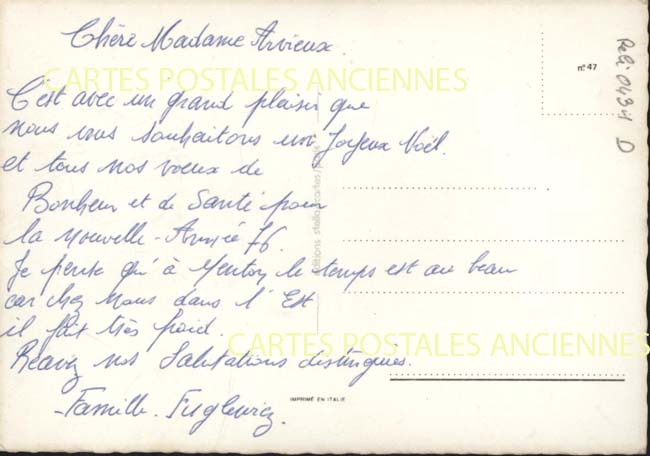 Chère Madame Arvieux.
CARTES POSTALES ANCIENNES
n° 47
Réf: 0434 D
C'est avec un grand plaisir que
nous vous souhaitons un Joyeux Noël.
et tous nos voeux de
Bonheur et de Santé pour
la nouvelle-Année 76.
Je pense qu'à Menton le temps est au beau
car chez nous dans l'Est
il fait très froid.
CARTES POSTALES ANCIENNES
Recevez nos Salutations distinguées.
Famille
IMPRIMÉ EN ITALIE
éditions stella